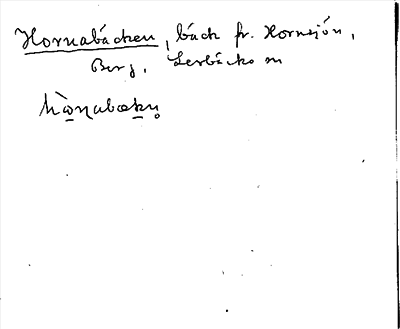 Hornabäcken, bäck fr. Hornsjön,
Berg, Lerbäcks sn